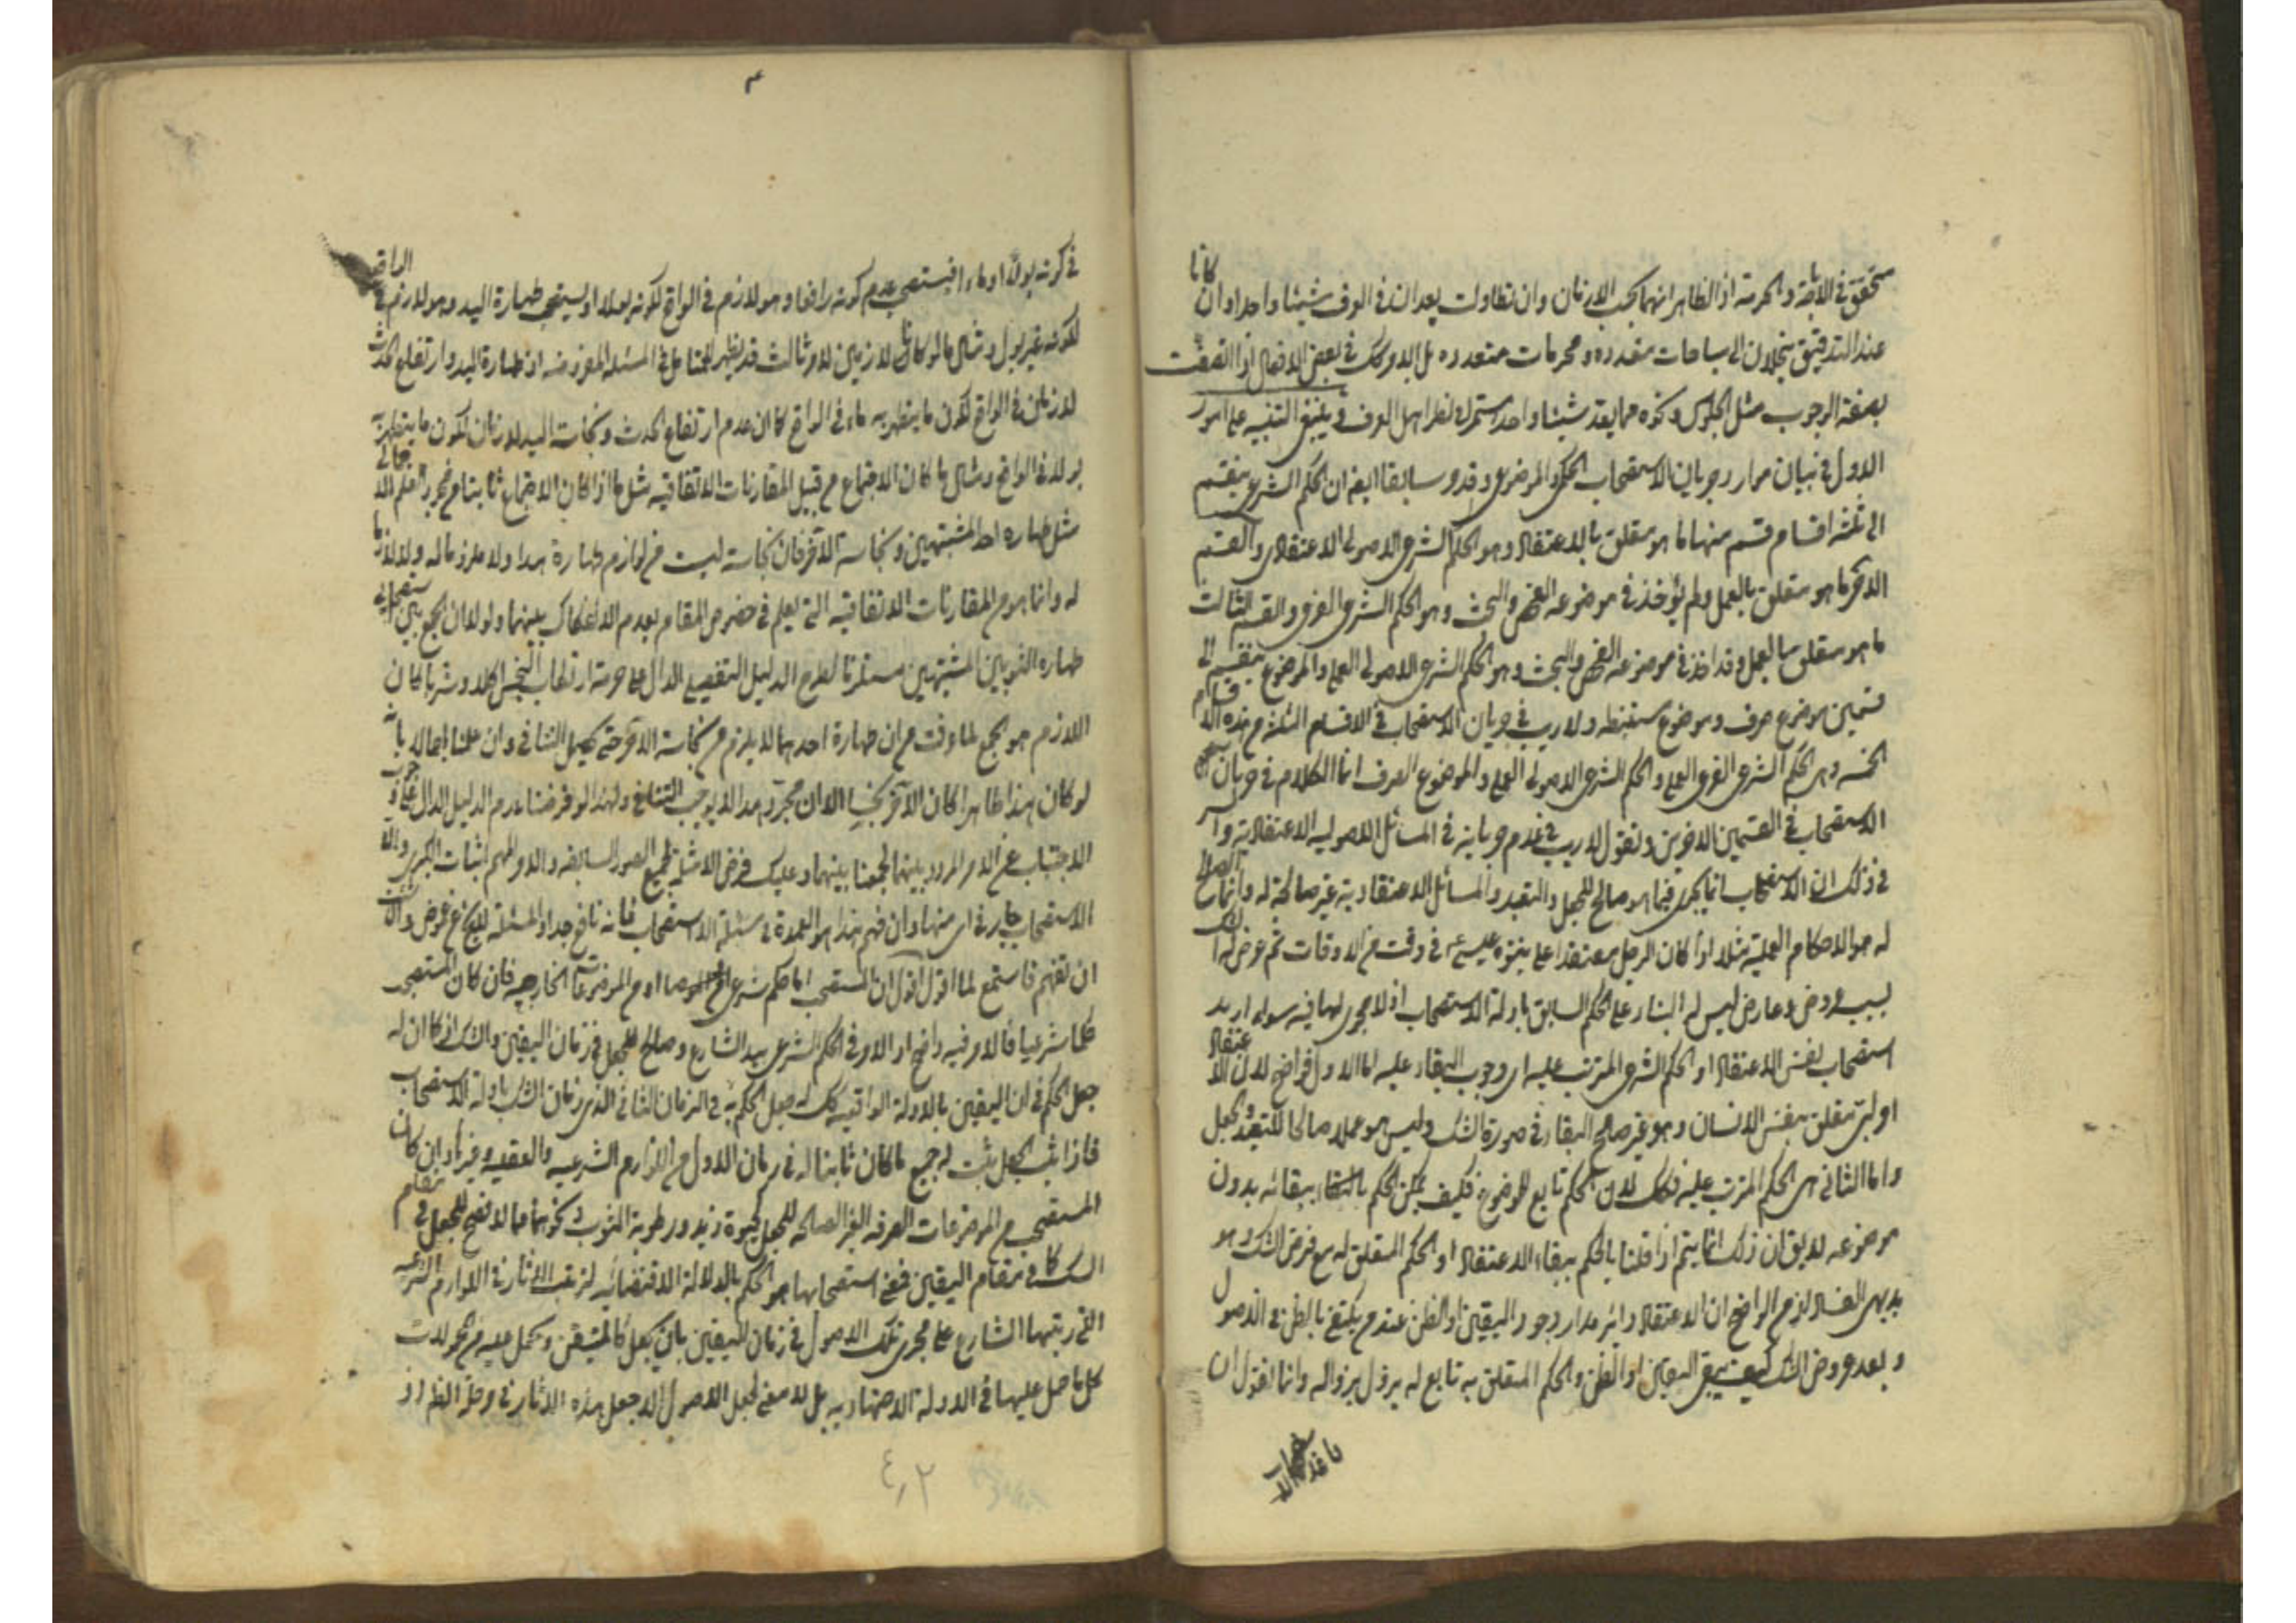 متحقق في الاباحة والحرمة اذ الظاهر انهما بحسب الازمان وان تطاولت يعد ان في العرف شيئا واحدا وان كانا
عند التدقيق ينحلان الى مباحات متعدده ومحرمات متعدده بل الامر كك في بعض الافعال اذا اتصفت
بصفة الوجوب مثل الجلوس ونحوه مما يعد شيئا واحدا مستمرا في نظر اهل العرف وينبغي التنبيه على امور
الاول في بيان موارد جريان الاستصحاب الحكمي والموضوعي وقد مر سابقا ايضا ان الحكم الشرعي ينقسم
الى ثلثة اقسام قسم منها ما هو متعلق بالاعتقاد وهو الحكم الشرعي الاصولي الاعتقادي والقسم
الاخر ما هو متعلق بالعمل ولم يؤخذ في موضوعه الفحص والبحث وهو الحكم الشرعي الفرعي والقسم الثالث
ما هو متعلق بالعمل وقد اخذ في موضوعه الفحص والبحث وهو الحكم الشرعي الاصولي العملي والموضوع ينقسم الى
قسمين موضوع صرف وموضوع مستنبط ولا ريب في جريان الاستصحاب في الاقسام الثلثة من هذه الاقسام
الخمسه وهي الحكم الشرعي الفرعي العملي والحكم الشرعي الاصولي العملي والموضوع الصرف انما الكلام في جريان
الاستصحاب في القسمين الاخرين ونقول لا ريب في عدم جريانه في المسائل الاصوليه الاعتقادية والسر
في ذلك ان الاستصحاب انما يجري فيما هو صالح للجعل والتعبد والمسائل الاعتقادية غير صالحة له وانما الصالح
له هو الاحكام العملية مثلا اذا كان الرجل معتقدا على بنبوة عيسى ع في وقت من الاوقات ثم عرض له الشك
بسبب عروض عارض ليس له البناء على الحكم السابق بادلة الاستصحاب اذ لا مجرى لها فيه سواء اريد
استصحاب نفس الاعتقاد او الحكم الشرعي المترتب عليه اي وجوب البقاء عليه اما الاول فواضح لان الاعتقاد
امر متعلق بنفس الانسان وهو غير صالح البقاء في صورة الشك وليس هو عملا صالحا للتعبد والجعل
واما الثاني هي الحكم المترتب عليه فكك لان الحكم تابع للموضوع فكيف يمكن الحكم ببقائه بدون
موضوعه لا يق ان ذلك انما يتم اذا قلنا بالحكم ببقاء الاعتقاد او الحكم المتعلق له مع فرض الشك وهو
بديهي الفساد لزم الواضح ان الاعتقاد دائر مدار وجود اليقين او الظن عند من يكتفي بالظن في الاصول
وبعد عروض الشك كيف يبقى اليقين او الظن والحكم المتعلق به تابع له يزول بزواله وانما نقول ان
في كونه بولا او ماء فيستصحب عدم كونه رافعا وهو لازم في الواقع لكونه بولا او يستصحب طهارة اليد وهو لازم في الواقع
لكونه غير بول ومثال ما لو كانا لازمين لامر ثالث قد يظهر للمتامل في المسئلة المفروضه اذ طهارة اليد وارتفاع الحدث
لازمان في الواقع لكون ما يتطهر به ماء في الواقع كما ان عدم ارتفاع الحدث ونجاسة اليد لازمان لكون ما يتطهر به
بولا في الواقع ومثال ما كان الاجتماع من قبيل المقارنات الاتفاقيه مثل ما اذا كان الاجتماع ثابتا من مجرد العلم الاجمالي
مثل طهاره احد المشتبهين ونجاسة الاخر فان نجاسته ليست من لوازم طهارة هذا ولا ملزوما له ولا لازما
له وانما هو من المقارنات الاتفاقيه التي يعلم في خصوص المقام بعدم الانفكاك بينهما ولولا ان الجمع بين استصحابي
طهاره الثوبين المشتبهين مستلزما لطرح الدليل التفصيلي الدال على حرمة ارتكاب النجس اكلا وشربا لكان
اللازم هو الجمع لما عرفت من ان طهارة احدهما لا يلزم من نجاسة الاخر حتى يحصل التنافي وان علمنا اجمالا بانه
لو كان هذا طاهرا كان الاخر نجسا الا ان مجرد هذا لا يوجب التنافي ولهذا لو فرضنا عدم الدليل الدال على وجوب
الاجتناب عن الامر المردد بينهما لجمعنا بينهما وعليك بفرض الامثلة لجميع الصور السابقه والامر المهم اثبات الكبرى والا
الاستصحاب جار في اي منها وان فهم هذا هو العمدة في مسئلة الاستصحاب فانه نافع جدا
ان تفهم فاستمع لما اقول اقول ان المستصحب اما حكم شرعي او من الموضوعات الخارجيه فان كان المستصحب
حكما شرعيا فالامر فيه واضح اذ الامر في الحكم الشرعي بيد الشارع وصالح للجعل في زمان اليقين والشك فكما ان له
جعل الحكم في ان اليقين بالادلة الواقعيه كك له جعل الحكم به في الزمان الثاني الذي زمان الشك بادلة الاستصحاب
فاذا ثبت الجعل يثبت له جميع ما كان ثابتا له في زمان الاول من اللوازم الشرعيه والعقليه وغيرها وان كان
المستصحب من الموضوعات الصرفه الغير الصالحه للجعل كحيوة زيد ورطوبة الثوب ونحوهما مما لا تصح للجعل في مقام
الشك كما في مقام اليقين فمعنى استصحابها هو الحكم بالدلالة الاقتضائيه لترتب الاثار في اللوازم الشرعيه
التي رتبها الشارع على مجرى تلك الاصول في زمان اليقين بان يجعل كالمتيقن ويحمل عليه من محمولات
كل ما حمل عليها في الادلة الاجتهاديه بل لا معنى لجعل الاصول الا جعل هذه الاثار في مرحلة الظ اذ
٤٠٢